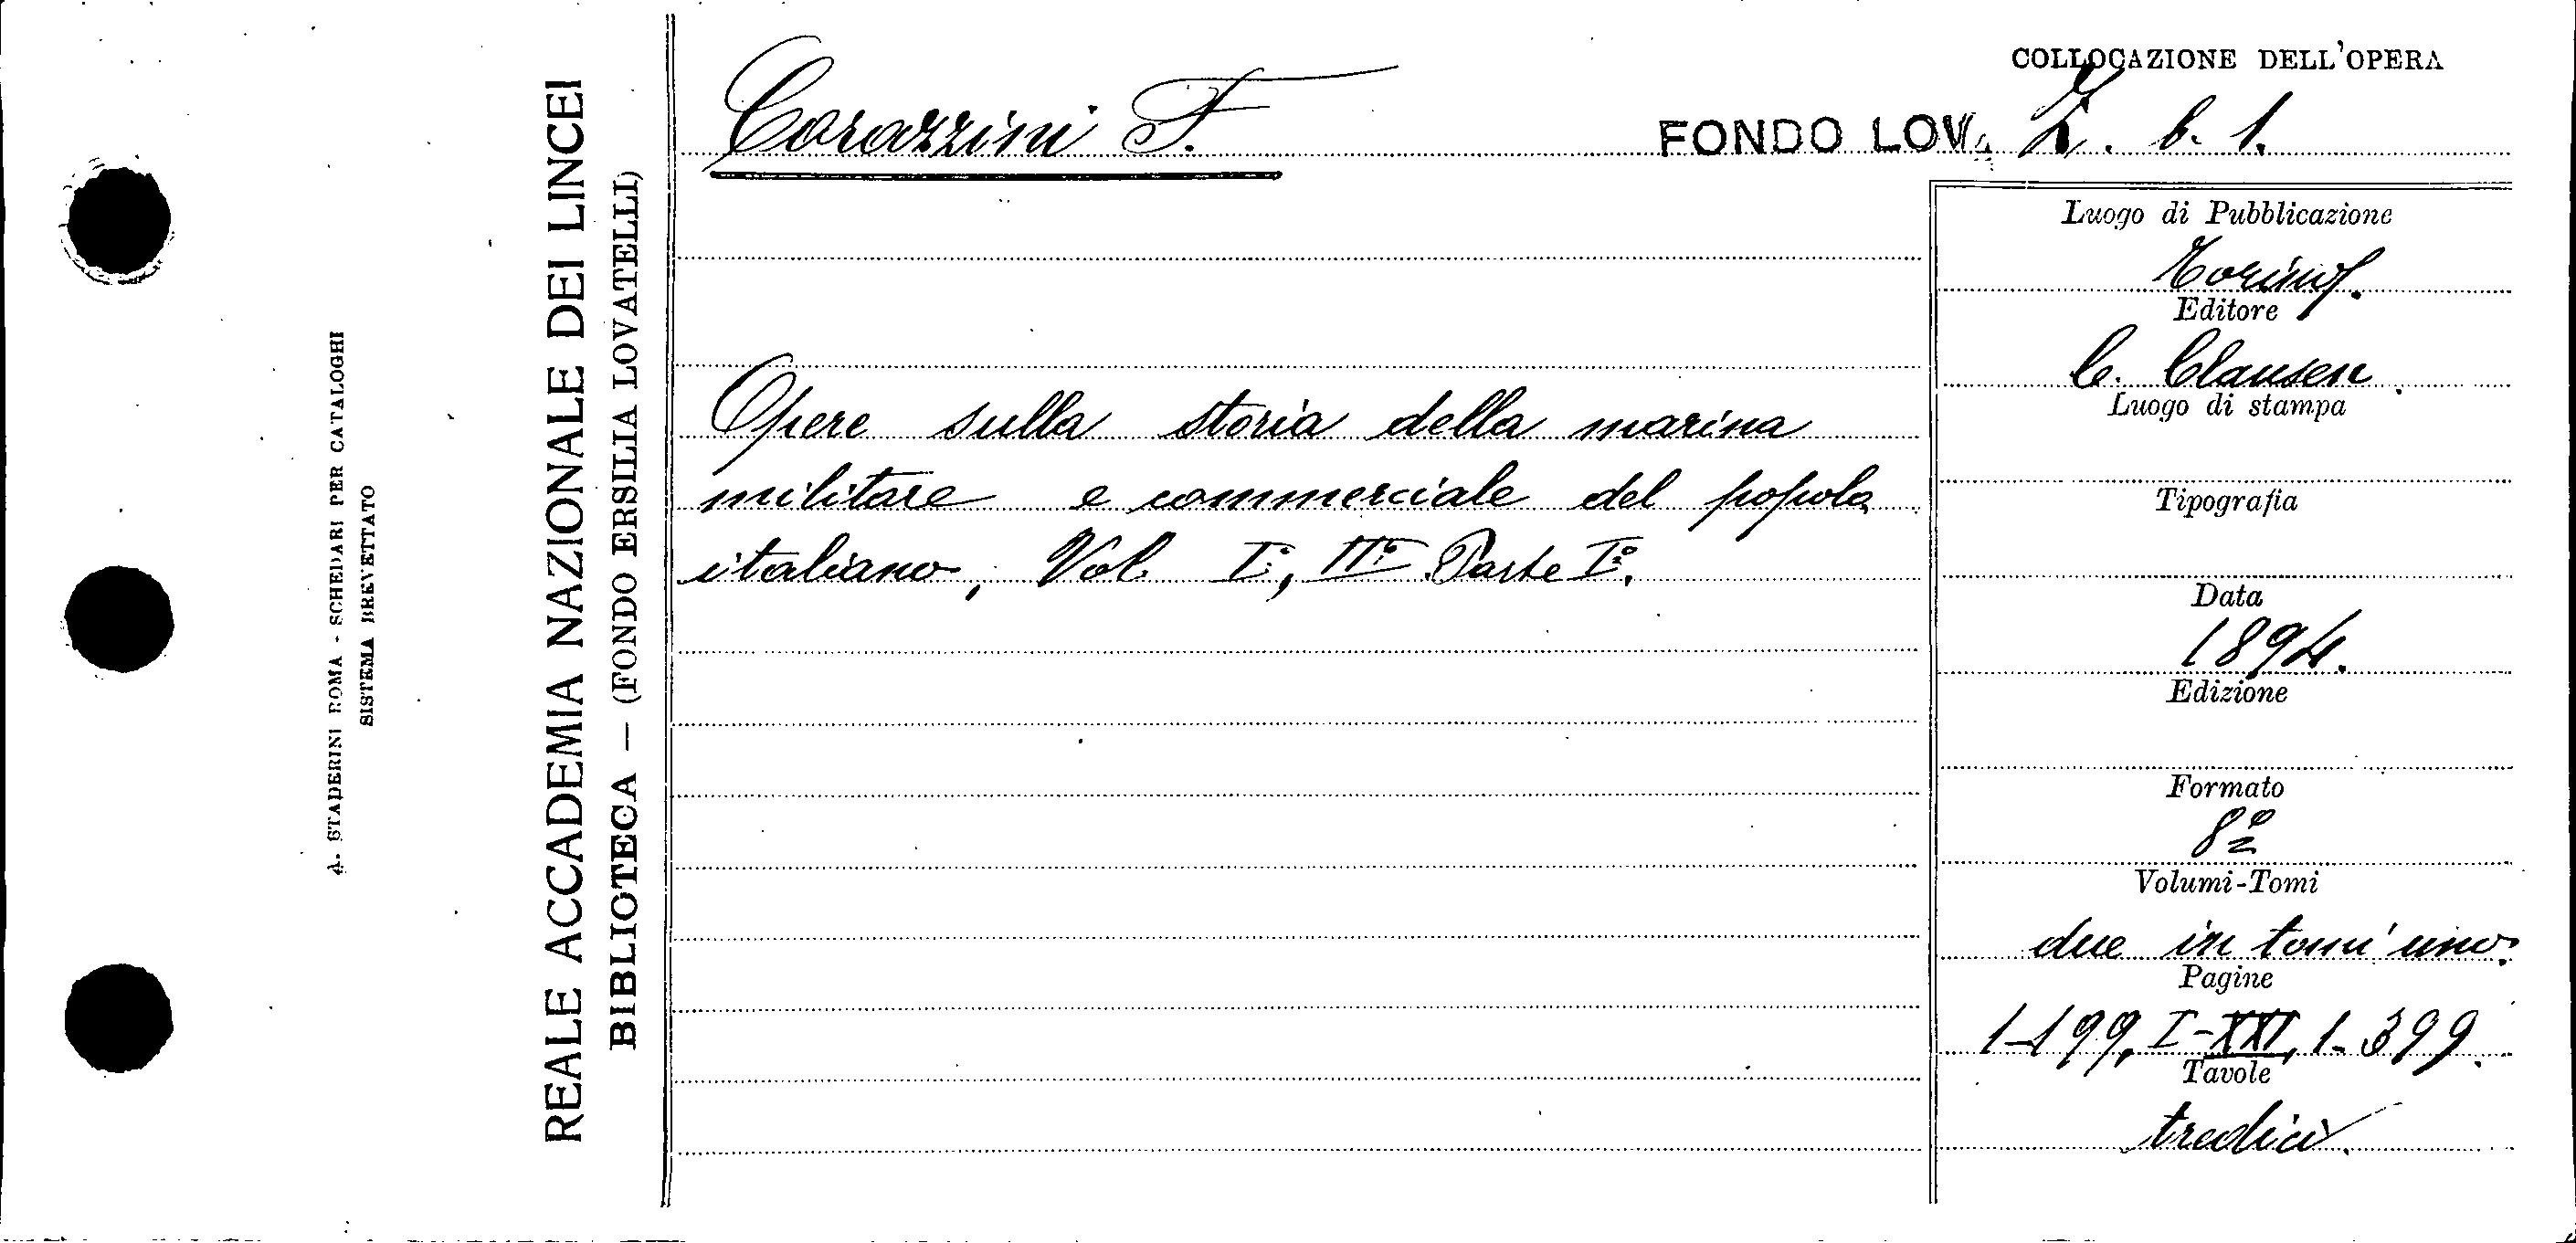 A. STADERINI ROMA - SCHEDARI PER CATALOGHI
SISTEMA BREVETTATO
REALE ACCADEMIA NAZIONALE DEI LINCEI
BIBLIOTECA — (FONDO ERSILIA LOVATELLI)
Corazzini F.
COLLOCAZIONE DELL'OPERA
FONDO LOV. Z. b. 1.
Opere sulla storia della marina
militare e commerciale del popolo
italiano, Vol. I°, II° Parte I°.
Luogo di Pubblicazione
Torino.
Editore
C. Clausen.
Luogo di stampa
Tipografia
Data
1894.
Edizione
Formato
8º
Volumi-Tomi
due in tomi uno.
Pagine
1-199, I-XXI, 1-399.
Tavole
tredici.